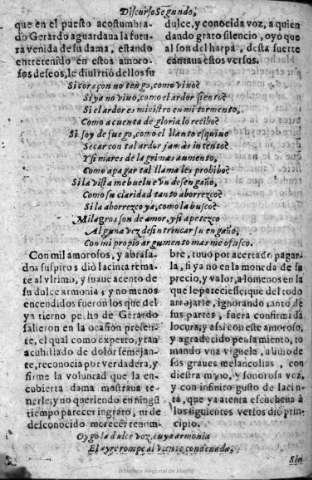 Discurso Segundo,
que en el puesto acostumbra-
do Gerardo aguardaua la futu-
ra venida de su dama, estando
entretenido en estos amoro-
sos deseos, le diuirtió de los su
dulce, y conocida voz, a quien
dando grato silencio, oyo que
al son del harpa, desta suerte
cantaua estos versos.
Si coraçon no tengo, como viuo?
Si ya no viuo, como el ardor siento?
Si el ardor es ministro en mi tormento,
Como a cuenta de gloria lo recibo?
Si soy de fuego, como el llanto esquiuo
Secar con tal ardor jamás intento?
Y si mares de lagrimas aumento,
Como apagar tal llama les prohibo?
Si la vista me buelue vn desengaño,
Como su claridad tanto aborrezco?
Si la aborrezco ya, como la busco?
Milagros son de amor, y si apetezco
Alguna vez desintrincar su engaño,
Con mi propio argumento mas me ofusco.
Con mil amorosos, y abrasa-
dos suspiros diò Iacinta rema-
te al vltimo, y suaue acento de
su dulce armonia, y no menos
encendidos fueron los que del
ya tierno pecho de Gerardo
salieron en la ocasion presen-
te, el qual como experto, y tan
acuchillado de dolor semejan-
te, reconocia por verdadera, y
firme la voluntad que la en-
cubierta dama mostraua te-
nerle, y no queriendo en ningū
tiempo parecer ingrato, ni de
desconocido merecer renom-
bre, tuuo por acertado pagar-
la, si ya no en la moneda de su
precio, y valor, alomenos en la
que le pareciesse que del todo
arrojarse, ignorando tanto de
sus partes, fuera confirmada
locura; y assi con este amoroso,
y agradecido pensamiento, to
mando vna viguela, abuso de
sus graues melancolias, con
diestra mano, y sonorosa voz,
y con infinito gusto de Iacin-
ta, que ya atenta escuchaua à
los siguientes versos diò prin-
cipio.
Oygo la dulce voz, cuya armonia
El ayre rompe al viento condenada,
Sin
Biblioteca Regional de Madrid